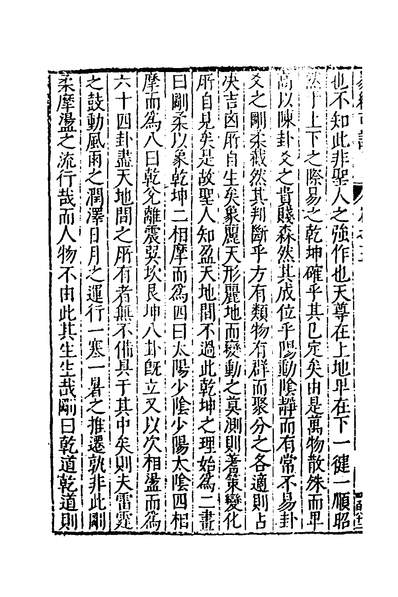 也不知此非聖人之強作也天尊在上地卑在下一健一順昭
然于上下之際易之乾坤確乎其已定矣由是萬物散殊而卑
高以陳卦爻之貴賤森然其成位乎陽動陰靜而有常不易卦
爻之剛柔截然其判斷乎方有類物有群而聚分之各適則占
決吉凶所自生矣象麗天形麗地而變動之莫測則蓍策變化
所自見矣是故聖人知盈天地間不過此乾坤之理始為二畫
曰剛柔以象乾坤二相摩而為四曰太陽少陰少陽太陰四相
摩而為八曰乾兌離震巽坎艮坤八卦旣立又以次相盪而為
六十四卦盡天地間之所有者無不備具于其中矣則夫雷霆
之鼓動風雨之潤澤日月之運行一寒一暑之推遷孰非此剛
柔摩盪之流行哉而人物不由此其生生哉剛曰乾道乾道則